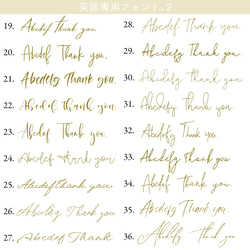 英語専用フォント.2
19. Abcdef Thank you.
20. Abcdef Thank you,
21. Abcdefg Thank you
22. Abcdef Thank you.
23. Abcdef Thank you.
24. Abcdef Thank you
25. Abcdef Thank you.
26. Abcdefg Thank you
27. Abcdef Thank
28. Abcdef Thank you
29. Abcdefg Thank you.
30. Abcdefg Thank you
31. Abcdefg Thank you
32. Abcdef Thank you
33. Abcdefg Thank you
34. Abcdef Thank you
35. Abcdef Thank you.
36. Abcdef Thank you.